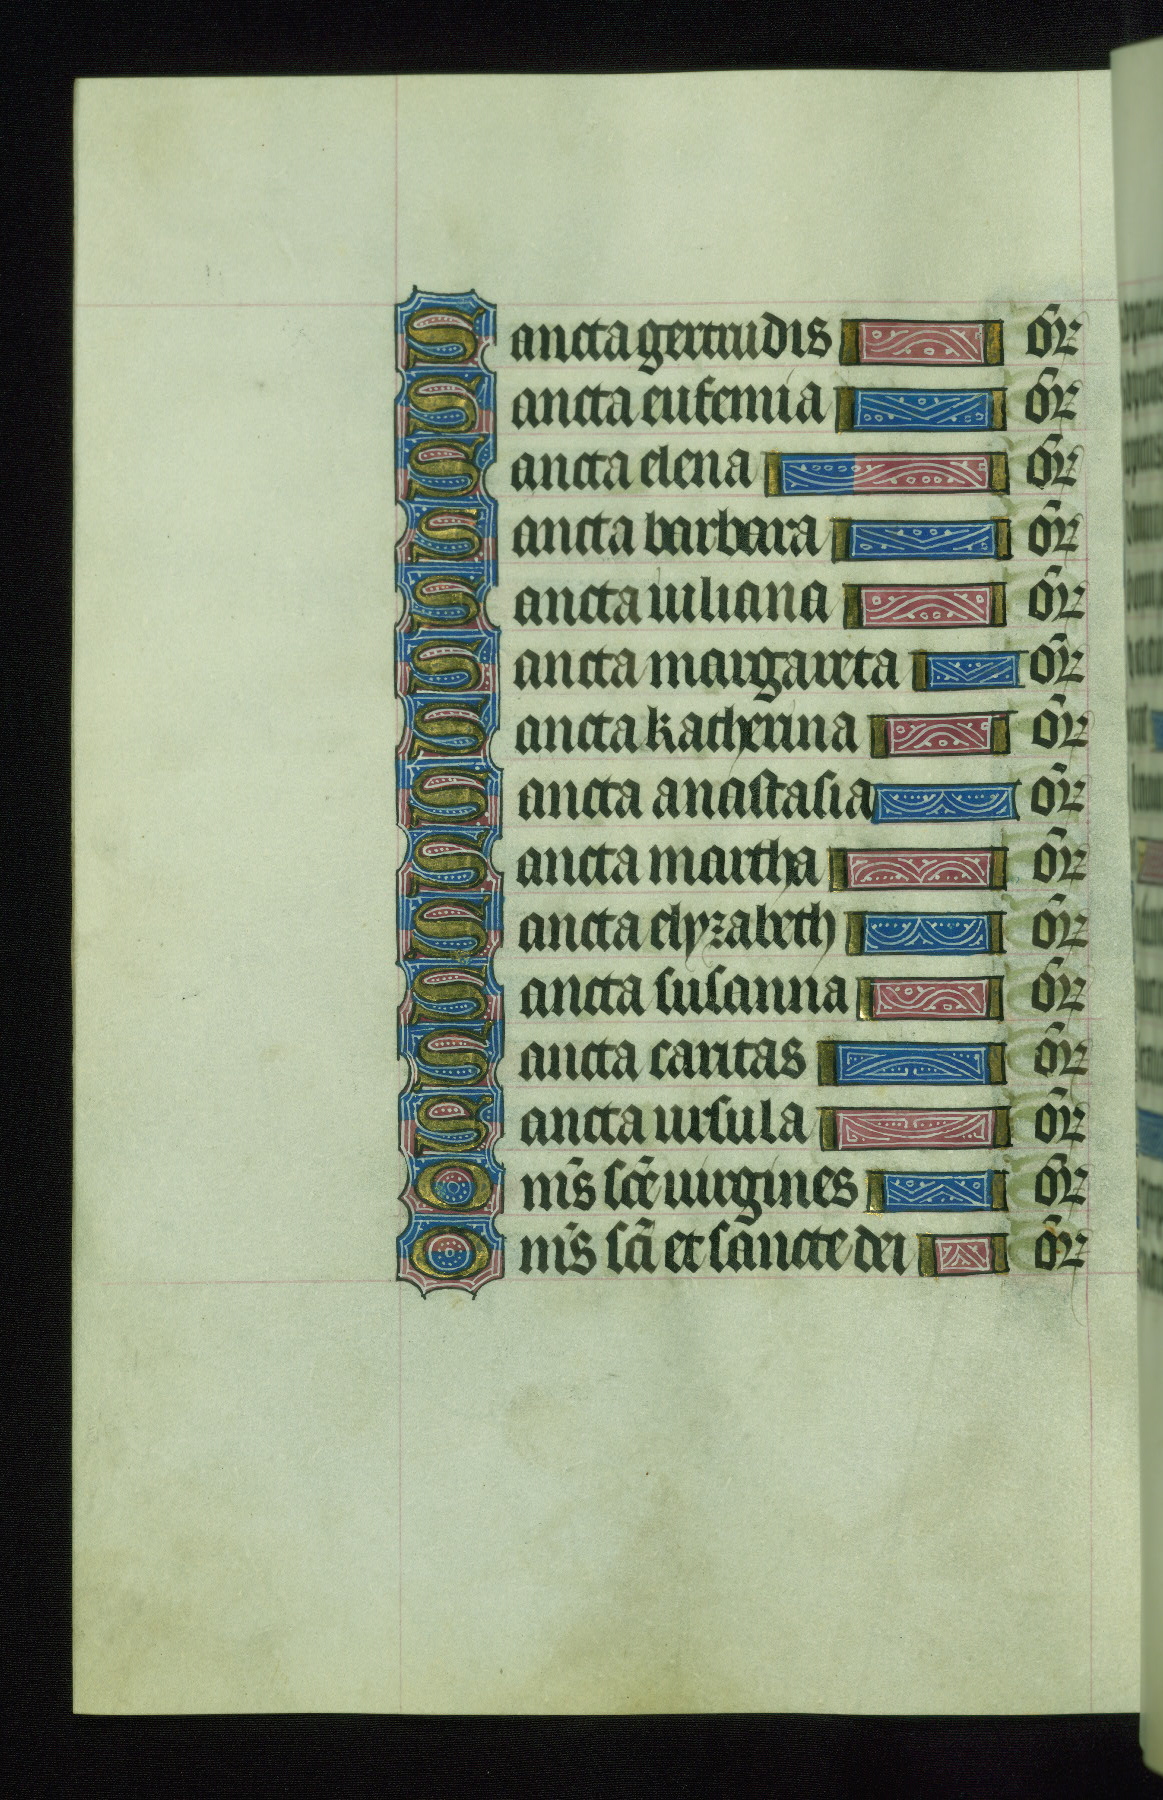 Sancta gertrudis or̄
Sancta eufemia or̄
Sancta elena or̄
Sancta barbara or̄
Sancta iuliana or̄
Sancta margareta or̄
Sancta katherina or̄
Sancta anastasia or̄
Sancta martha or̄
Sancta elyzabeth or̄
Sancta susanna or̄
Sancta caritas or̄
Sancta ursula or̄
Om̄s sc̄e uirgines or̄
Om̄s sc̄i et sancte dei or̄